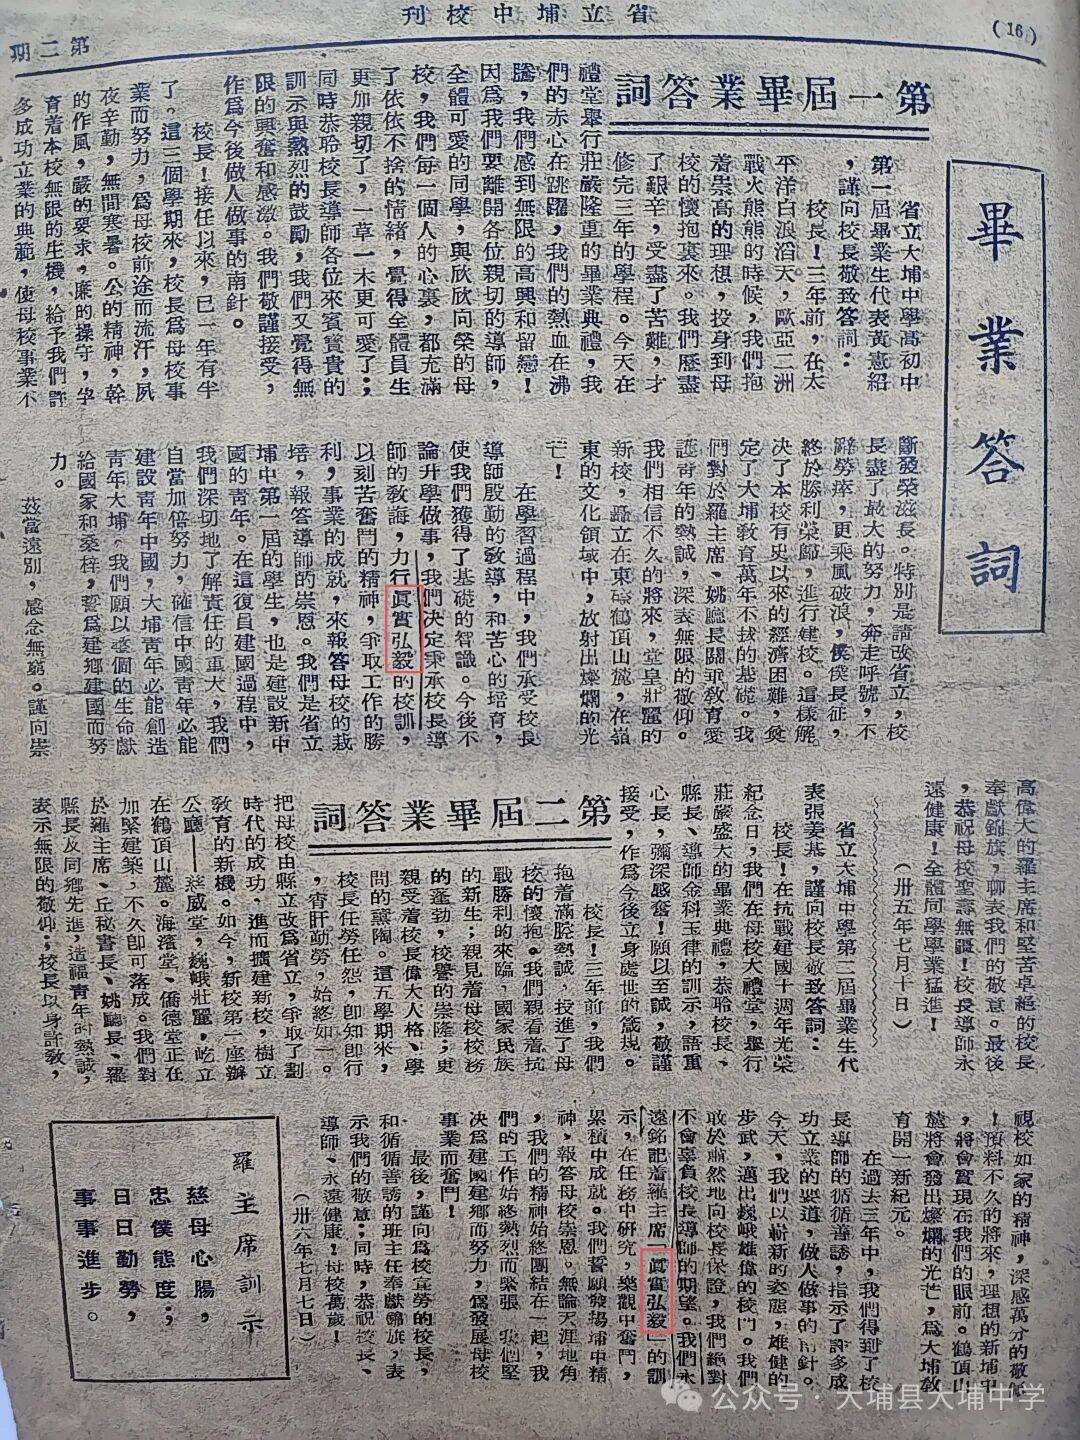 (16)
省立埔中校刊
第二期
畢業答詞
第一屆畢業答詞
省立大埔中學高初中
第一屆畢業生代表黃憲紹
，謹向校長敬致答詞：
校長！三年前，在太
平洋白浪滔天，歐亞二洲
戰火熊熊的時候，我們抱
着崇高的理想，投身到母
校的懷抱裏來。我們歷盡
了艱辛，受盡了苦難，才
修完三年的學程。今天在
禮堂舉行莊嚴隆重的畢業典禮，我
們的赤心在跳躍，我們的熱血在沸
騰，我們感到無限的高興和留戀！
因爲我們要離開各位親切的導師，
全體可愛的同學，與欣欣向榮的母
校，我們每一個人的心裏，都充滿
了依依不捨的情緒，覺得全體員生
更加親切了，一草一木更可愛了；
同時恭聆校長導師各位來賓寶貴的
訓示與熱烈的鼓勵，我們又覺得無
限的興奮和感激。我們敬謹接受，
作爲今後做人做事的南針。
校長！接任以來，已一年有半
了。這三個學期來，校長爲母校事
業而努力，爲母校前途而流汗，夙
夜辛勤，無間寒暑。公的精神，幹
的作風，嚴的要求，廉的操守，孕
育着本校無限的生機，給予我們許
多成功立業的典範，使母校事業不
斷發榮滋長。特別是請改省立，校
長盡了最大的努力，奔走呼號，不
辭勞瘁，更乘風破浪，僕僕長征，
終於勝利榮歸，進行建校。這樣解
決了本校有史以來的經濟困難，奠
定了大埔教育萬年不拔的基礎。我
們對於羅主席、姚廳長關垂教育愛
護青年的熱誠，深表無限的敬仰。
我們相信不久的將來，堂皇壯麗的
新校，矗立在東碇鶴頂山麓，在嶺
東的文化領域中，放射出燦爛的光
芒！
在學習過程中，我們承受校長
導師殷勤的教導，和苦心的培育，
使我們獲得了基礎的智識。今後不
論升學做事，我們决定秉承校長導
師的教誨，力行眞實弘毅的校訓，
以刻苦奮鬥的精神，爭取工作的勝
利，事業的成就，來報答母校的栽
培，報答導師的崇恩。我們是省立
埔中第一屆的學生，也是建設新中
國的青年。在這復員建國過程中，
我們深切地了解責任的重大，我們
自當加倍努力，確信中國青年必能
建設青年中國，大埔青年必能創造
青年大埔。我們願以整個的生命獻
給國家和桑梓，誓爲建鄉建國而努
力。
茲當遠別，感念無窮。謹向崇
高偉大的羅主席和堅苦卓絕的校長
奉獻錦旗，聊表我們的敬意。最後
，恭祝母校聖壽無疆！校長導師永
遠健康！全體同學學業猛進！
（卅五年七月十日）
第二屆畢業答詞
省立大埔中學第二屆畢業生代
表張姜基，謹向校長敬致答詞：
校長！在抗戰建國十週年光榮
紀念日，我們在母校大禮堂，舉行
莊嚴盛大的畢業典禮，恭聆校長、
縣長、導師金科玉律的訓示，語重
心長，彌深感奮！願以至誠，敬謹
接受，作爲今後立身處世的箴規。
校長！三年前，我們
抱着滿腔熱誠，投進了母
校的懷抱。我們親看着抗
戰勝利的來臨，國家民族
的新生；親見着母校校務
的蓬勃，校譽的崇隆；更
親受着校長偉大人格、學
問的薰陶。這五學期來，
校長任勞任怨，卽知卽行
，宵肝勤勞，始終如一。
把母校由縣立改爲省立，爭取了劃
時代的成功，進而擴建新校，樹立
教育的新機。如今，新校第一座辦
公廳——慈威堂，巍峨壯麗，屹立
在鶴頂山麓。海濱堂、僑德堂正在
加緊建築，不久卽可落成。我們對
於羅主席、丘秘書長、姚廳長、羅
縣長及同鄉先進，造福青年的熱誠，
表示無限的敬仰；校長以身許教，
視校如家的精神，深感萬分的敬佩
！預料不久的將來，理想的新埔中
，將會實現在我們的眼前。鶴頂山
麓將會發出燦爛的光芒，爲大埔教
育開一新紀元。
在過去三年中，我們得到了校
長導師的循循善誘，指示了許多成
功立業的要道，做人做事的南針。
今天，我們以嶄新的姿態，雄健的
步武，邁出巍峨雄偉的校門。我們
敢於肅然地向校長保證，我們絕對
不會辜負校長導師的期望。我們永
遠銘記着羅主席「眞實弘毅」的訓
示，在任務中研究，樂觀中奮鬥，
累積中成就。我們誓願發揚埔中精
神，報答母校崇恩。無論天涯地角
，我們的精神始終團結在一起，我
們的工作始終熱烈而緊張，我們堅
決爲建國建鄉而努力，爲發展母校
事業而奮鬥！
最後，謹向爲校宣勞的校長，
和循循善誘的班主任奉獻錦旗，表
示我們的敬意；同時，恭祝校長、
導師，永遠健康！母校萬歲！
（卅六年七月七日）
羅主席訓示
慈母心腸，
忠僕態度；
日日勤勞，
事事進步。
公众号 · 大埔县大埔中学